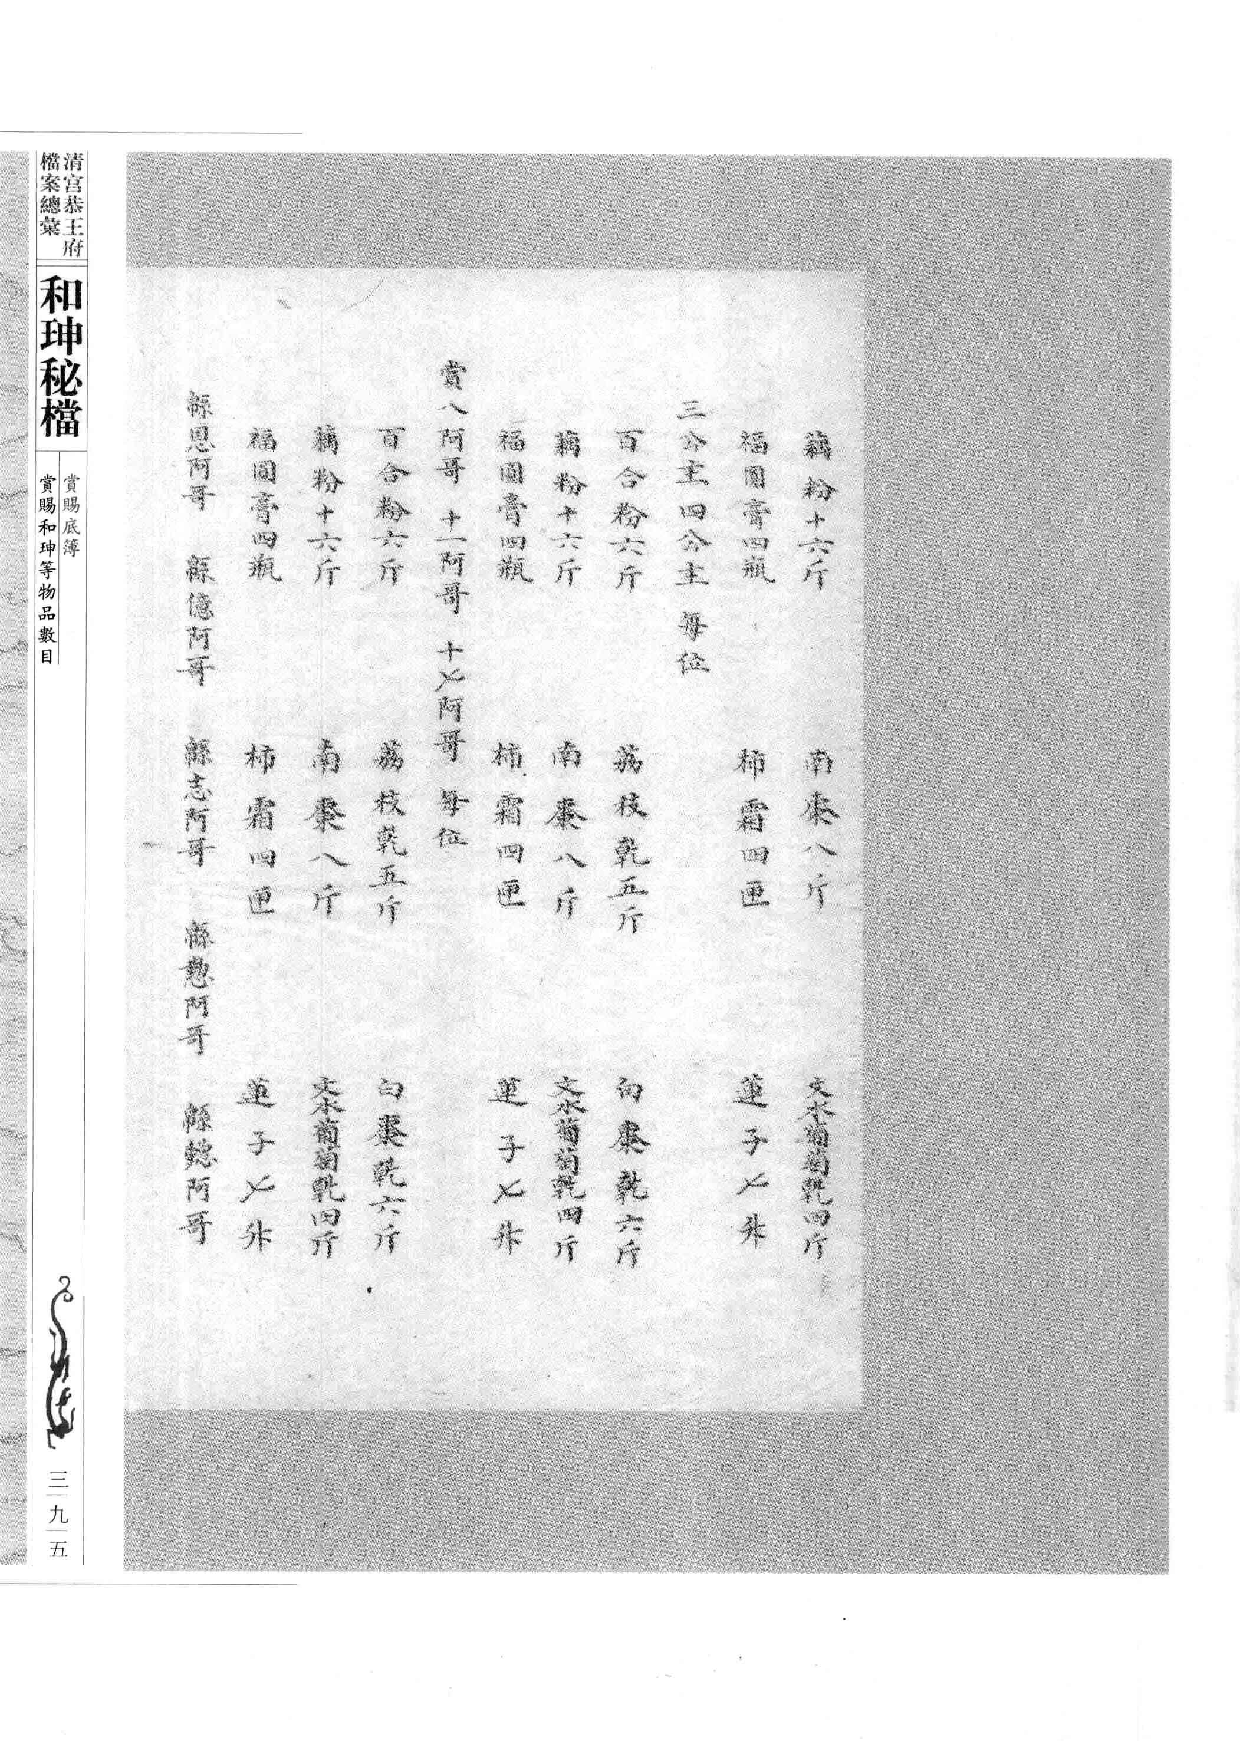 藕粉十六斤 南棗八斤 文水葡萄乾四斤
福圓膏四瓶 柿霜四匣 蓮子七升
三公主 四公主 每位
百合粉六斤 荔枝乾五斤 白棗乾六斤
藕粉十六斤 南棗八斤 文水葡萄乾四斤
福圓膏四瓶 柿霜四匣 蓮子七升
賞八阿哥 十一阿哥 十七阿哥 每位
百合粉六斤 荔枝乾五斤 白棗乾六斤
藕粉十六斤 南棗八斤 文水葡萄乾四斤
福圓膏四瓶 柿霜四匣 蓮子七升
緜恩阿哥 緜億阿哥 緜志阿哥 緜懃阿哥 緜懿阿哥
清宮恭王府
檔案總彙
和珅秘檔
賞賜底簿
賞賜和珅等物品數目
三九五